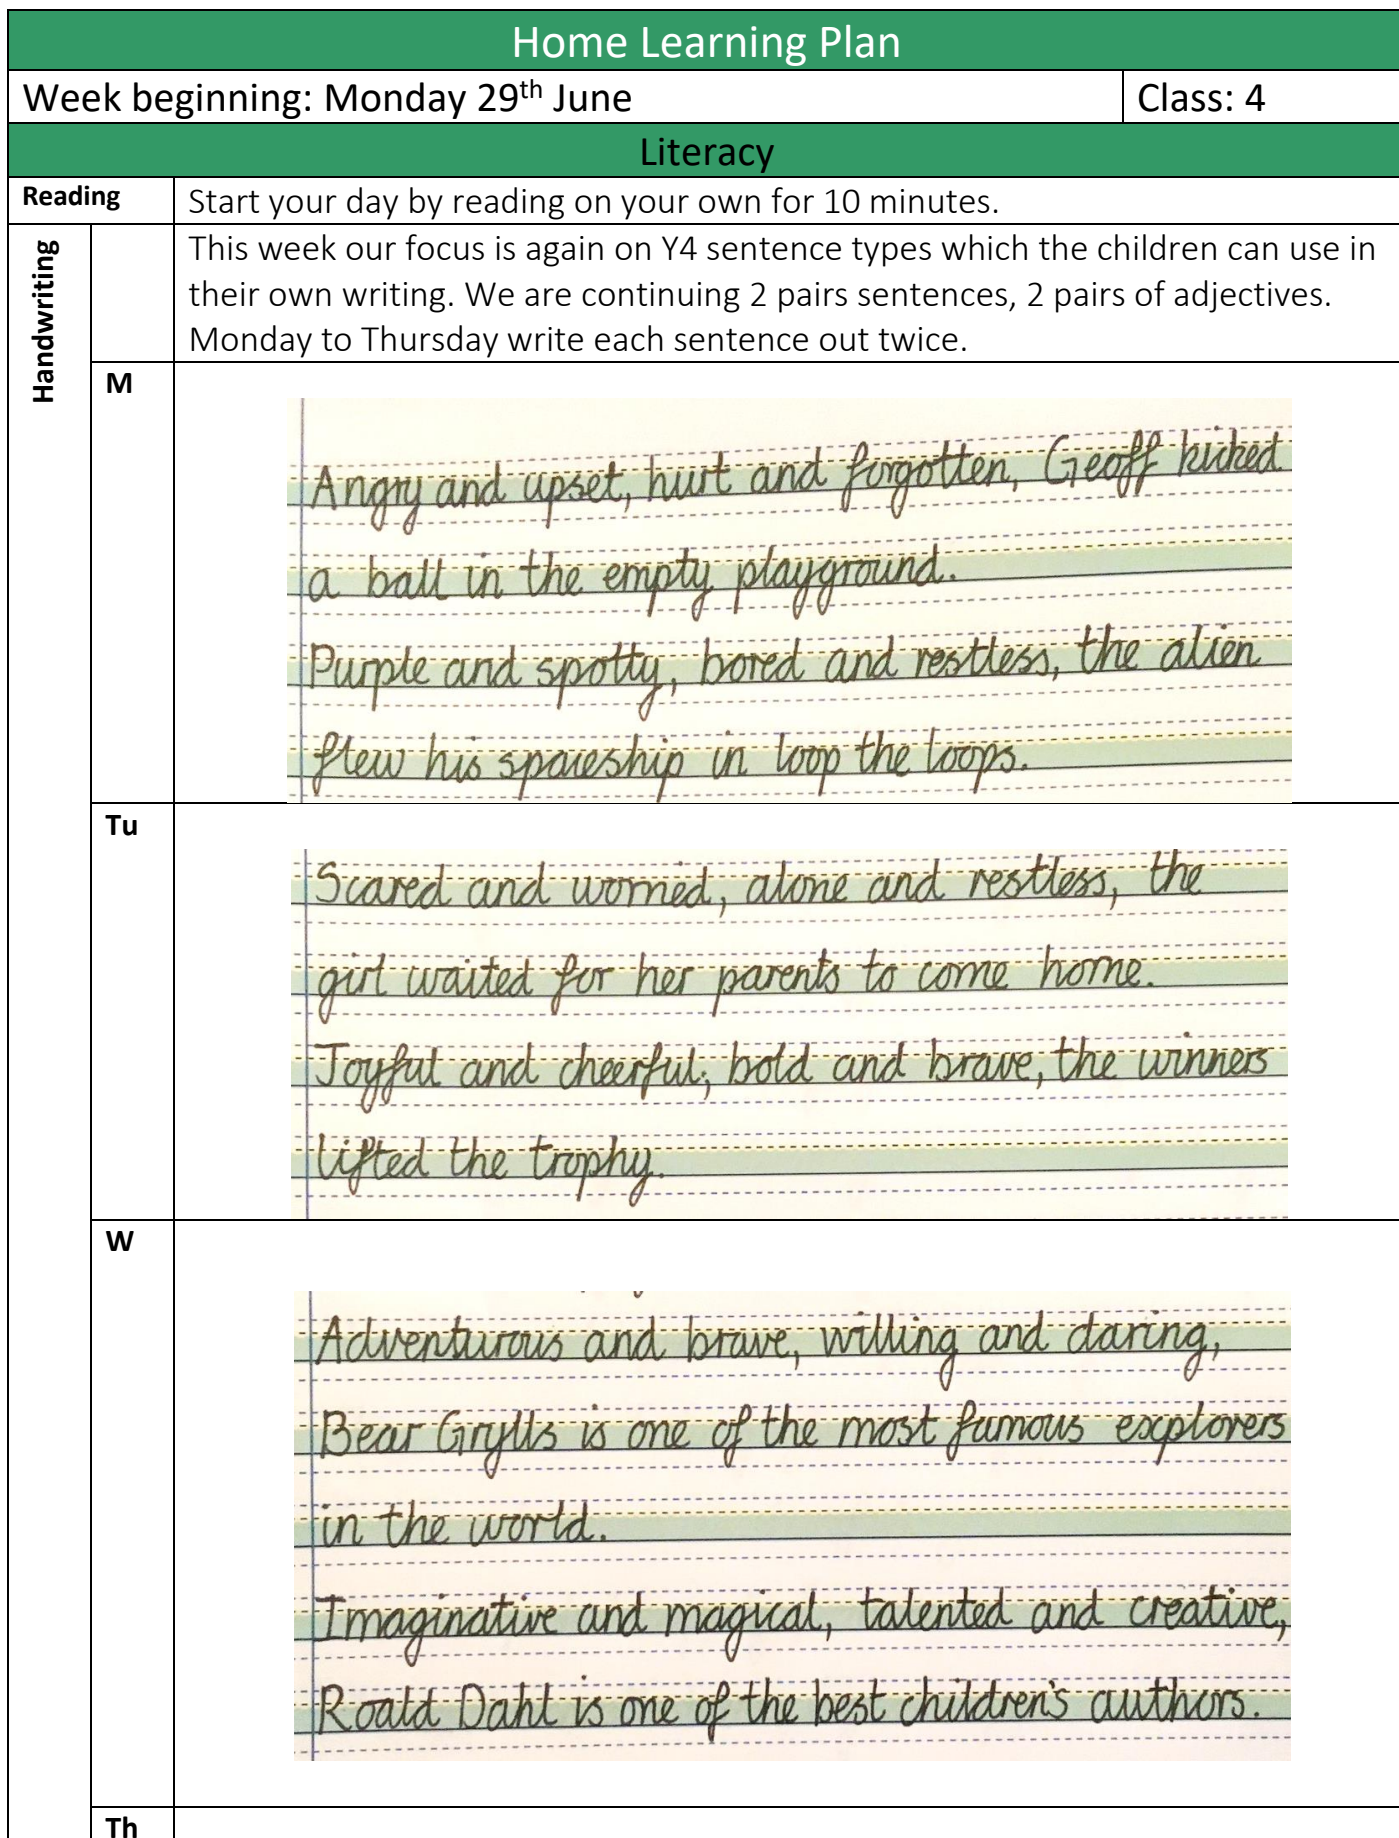 Home Learning Plan
Week beginning: Monday 29th June Class: 4
Literacy
Reading Start your day by reading on your own for 10 minutes.
Handwriting
This week our focus is again on Y4 sentence types which the children can use in
their own writing. We are continuing 2 pairs sentences, 2 pairs of adjectives.
Monday to Thursday write each sentence out twice.
M
Angry and upset, hurt and forgotten, Geoff kicked
a ball in the empty playground.
Purple and spotty, bored and restless, the alien
flew his spaceship in loop the loops.
Tu
Scared and worried, alone and restless, the
girl waited for her parents to come home.
Joyful and cheerful, bold and brave, the winners
lifted the trophy.
W
Adventurous and brave, willing and daring,
Bear Grylls is one of the most famous explorers
in the world.
Imaginative and magical, talented and creative,
Roald Dahl is one of the best children's authors.
Th